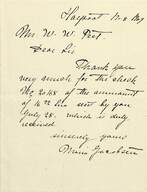 Mr. W. W.
Dear Sir
Thank you
very much for the check
No 2048 of the ammount
of 16 sent by you
July 25. which is duly
received
Sincerely yours
Jacobsen